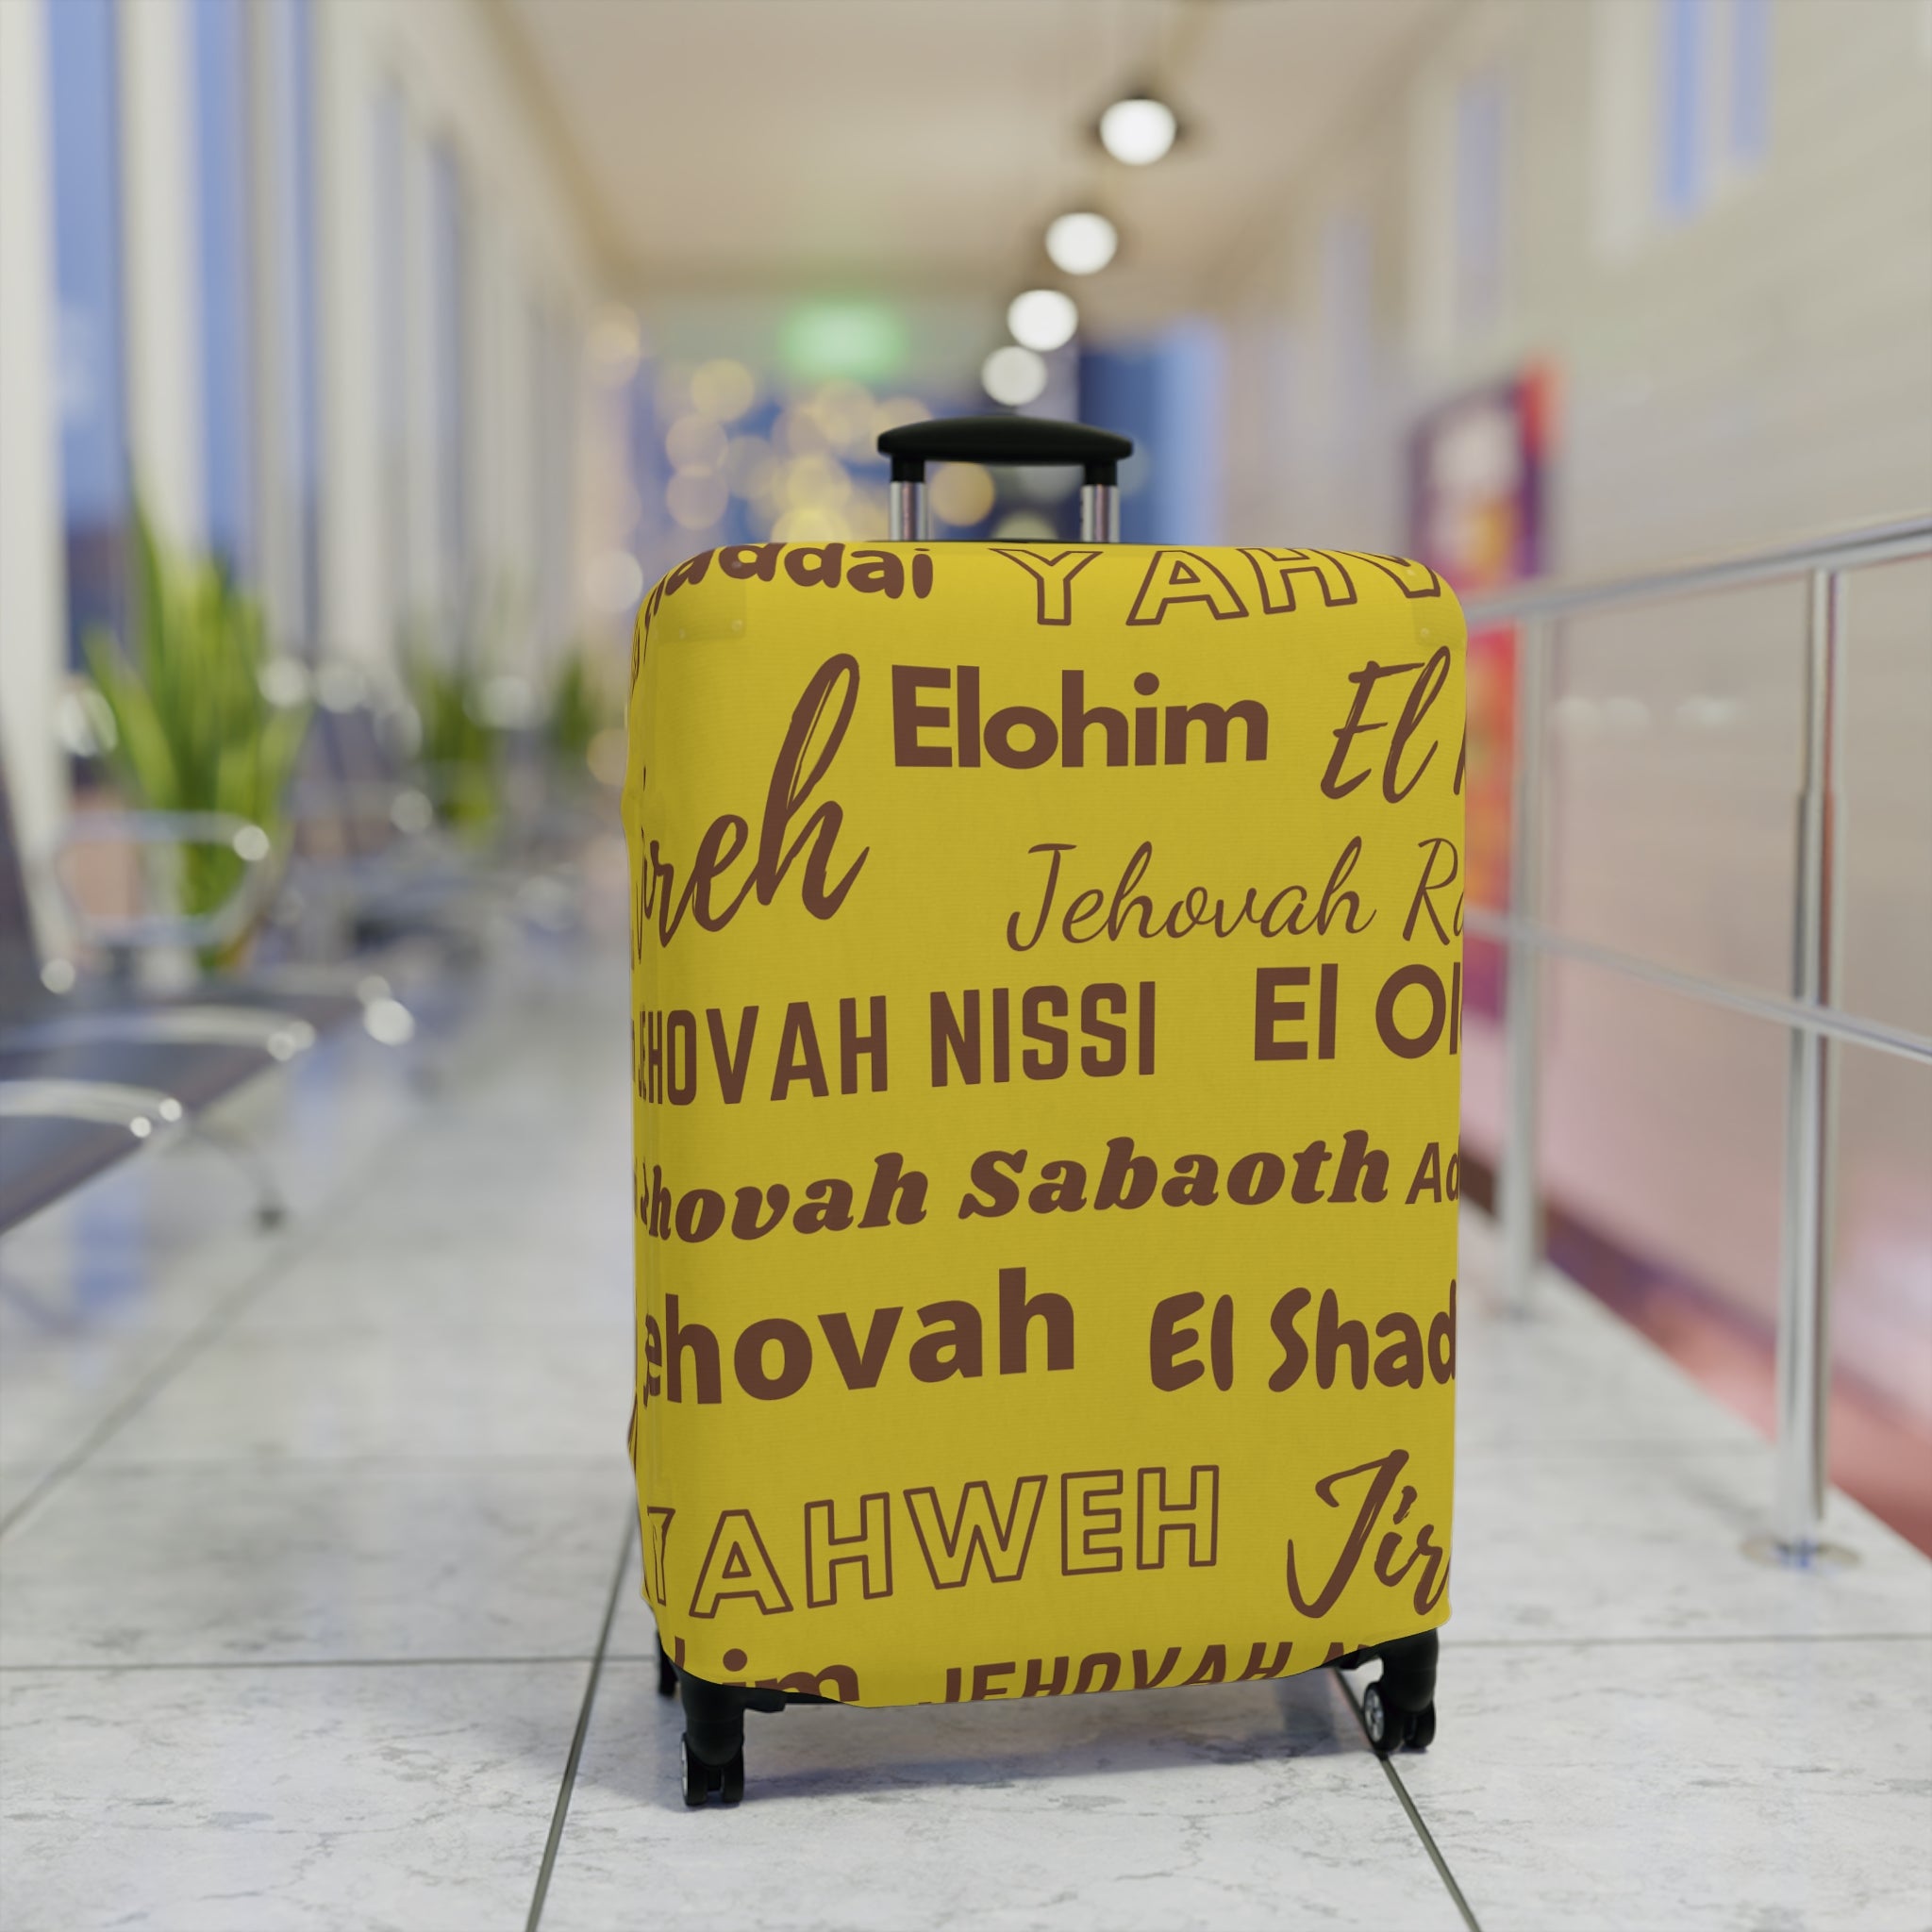 addai YAHW
Elohim El
ireh
Jehovah Ra
JEHOVAH NISSI El Ol
ehovah Sabaoth Ad
Jehovah El Shad
YAHWEH Jir
him JEHOVAH